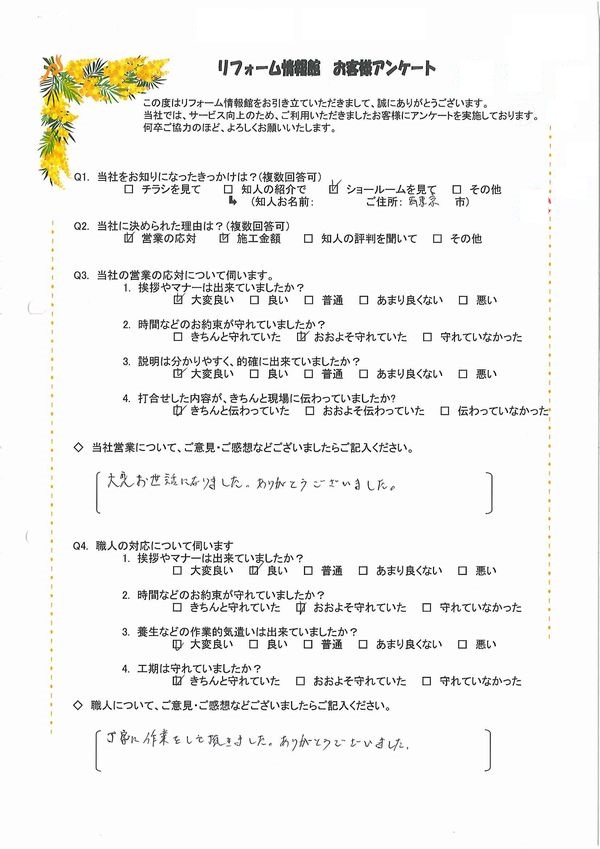 リフォーム情報館　お客様アンケート
この度はリフォーム情報館をお引き立ていただきまして、誠にありがとうございます。
当社では、サービス向上のため、ご利用いただきましたお客様にアンケートを実施しております。
何卒ご協力のほど、よろしくお願いいたします。
Q1. 当社をお知りになったきっかけは？(複数回答可)
□ チラシを見て　□ 知人の紹介で　☑ ショールームを見て　□ その他
↳ (知人お名前:　　　ご住所:　　　市)
Q2. 当社に決められた理由は？(複数回答可)
☑ 営業の応対　☑ 施工金額　□ 知人の評判を聞いて　□ その他
Q3. 当社の営業の応対について伺います。
1. 挨拶やマナーは出来ていましたか？
☑ 大変良い　□ 良い　□ 普通　□ あまり良くない　□ 悪い
2. 時間などのお約束が守れていましたか？
□ きちんと守れていた　☑ おおよそ守れていた　□ 守れていなかった
3. 説明は分かりやすく、的確に出来ていましたか？
☑ 大変良い　□ 良い　□ 普通　□ あまり良くない　□ 悪い
4. 打合せした内容が、きちんと現場に伝わっていましたか?
☑ きちんと伝わっていた　□ おおよそ伝わっていた　□ 伝わっていなかった
◇ 当社営業について、ご意見・ご感想などございましたらご記入ください。
大変お世話になりました。ありがとうございました。
Q4. 職人の対応について伺います
1. 挨拶やマナーは出来ていましたか？
□ 大変良い　☑ 良い　□ 普通　□ あまり良くない　□ 悪い
2. 時間などのお約束が守れていましたか？
□ きちんと守れていた　☑ おおよそ守れていた　□ 守れていなかった
3. 養生などの作業的気遣いは出来ていましたか？
☑ 大変良い　□ 良い　□ 普通　□ あまり良くない　□ 悪い
4. 工期は守れていましたか？
☑ きちんと守れていた　□ おおよそ守れていた　□ 守れていなかった
◇ 職人について、ご意見・ご感想などございましたらご記入ください。
丁寧に作業をして頂きました。ありがとうございました。